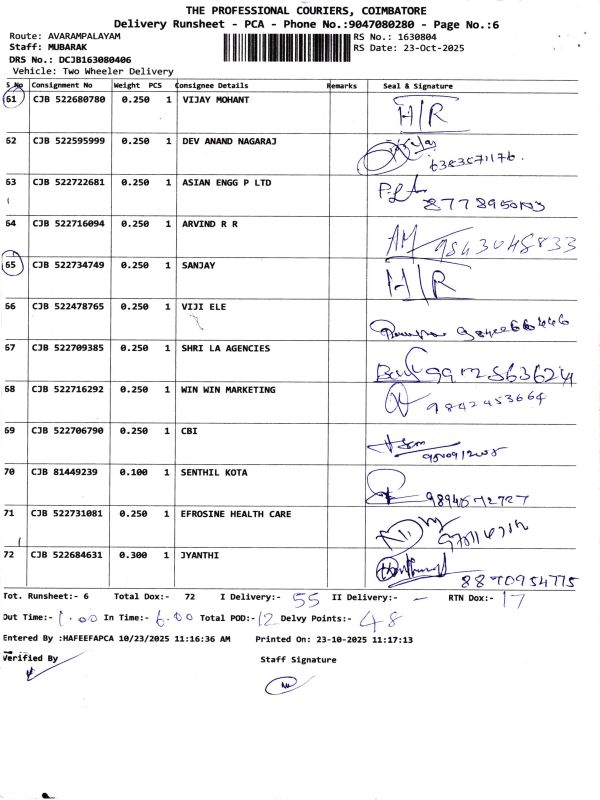 THE PROFESSIONAL COURIERS, COIMBATORE
Delivery Runsheet - PCA - Phone No.:9047080280 - Page No.:6
Route: AVARAMPALAYAM RS No.: 1630804
Staff: MUBARAK RS Date: 23-Oct-2025
DRS No.: DCJB163080406
Vehicle: Two Wheeler Delivery
S No Consignment No Weight PCS Consignee Details Remarks Seal & Signature
61 CJB 522680780 0.250 1 VIJAY MOHANT H/R
62 CJB 522595999 0.250 1 DEV ANAND NAGARAJ
63 CJB 522722681 0.250 1 ASIAN ENGG P LTD
64 CJB 522716094 0.250 1 ARVIND R R 9843048833
65 CJB 522734749 0.250 1 SANJAY H/R
66 CJB 522478765 0.250 1 VIJI ELE
67 CJB 522709385 0.250 1 SHRI LA AGENCIES
68 CJB 522716292 0.250 1 WIN WIN MARKETING 9842453664
69 CJB 522706790 0.250 1 CBI
70 CJB 81449239 0.100 1 SENTHIL KOTA 9894572727
71 CJB 522731081 0.250 1 EFROSINE HEALTH CARE
72 CJB 522684631 0.300 1 JYANTHI 8870954775
Tot. Runsheet:- 6 Total Dox:- 72 I Delivery:- 55 II Delivery:- - RTN Dox:- 17
Out Time:- 1.00 In Time:- 6.00 Total POD:- 12 Delvy Points:- 48
Entered By :HAFEEFAPCA 10/23/2025 11:16:36 AM Printed On: 23-10-2025 11:17:13
Verified By Staff Signature